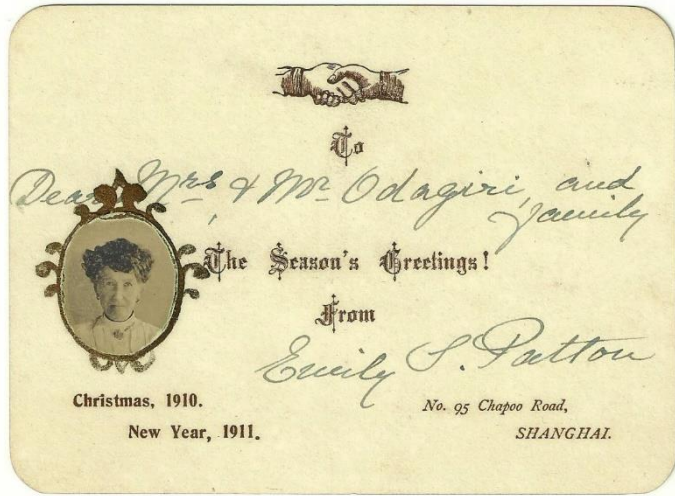 To
Dear Mrs & Mr Odagiri, and
family
The Season's Greetings!
From
Emily S. Patton
Christmas, 1910.
New Year, 1911.
No. 95 Chapoo Road,
SHANGHAI.